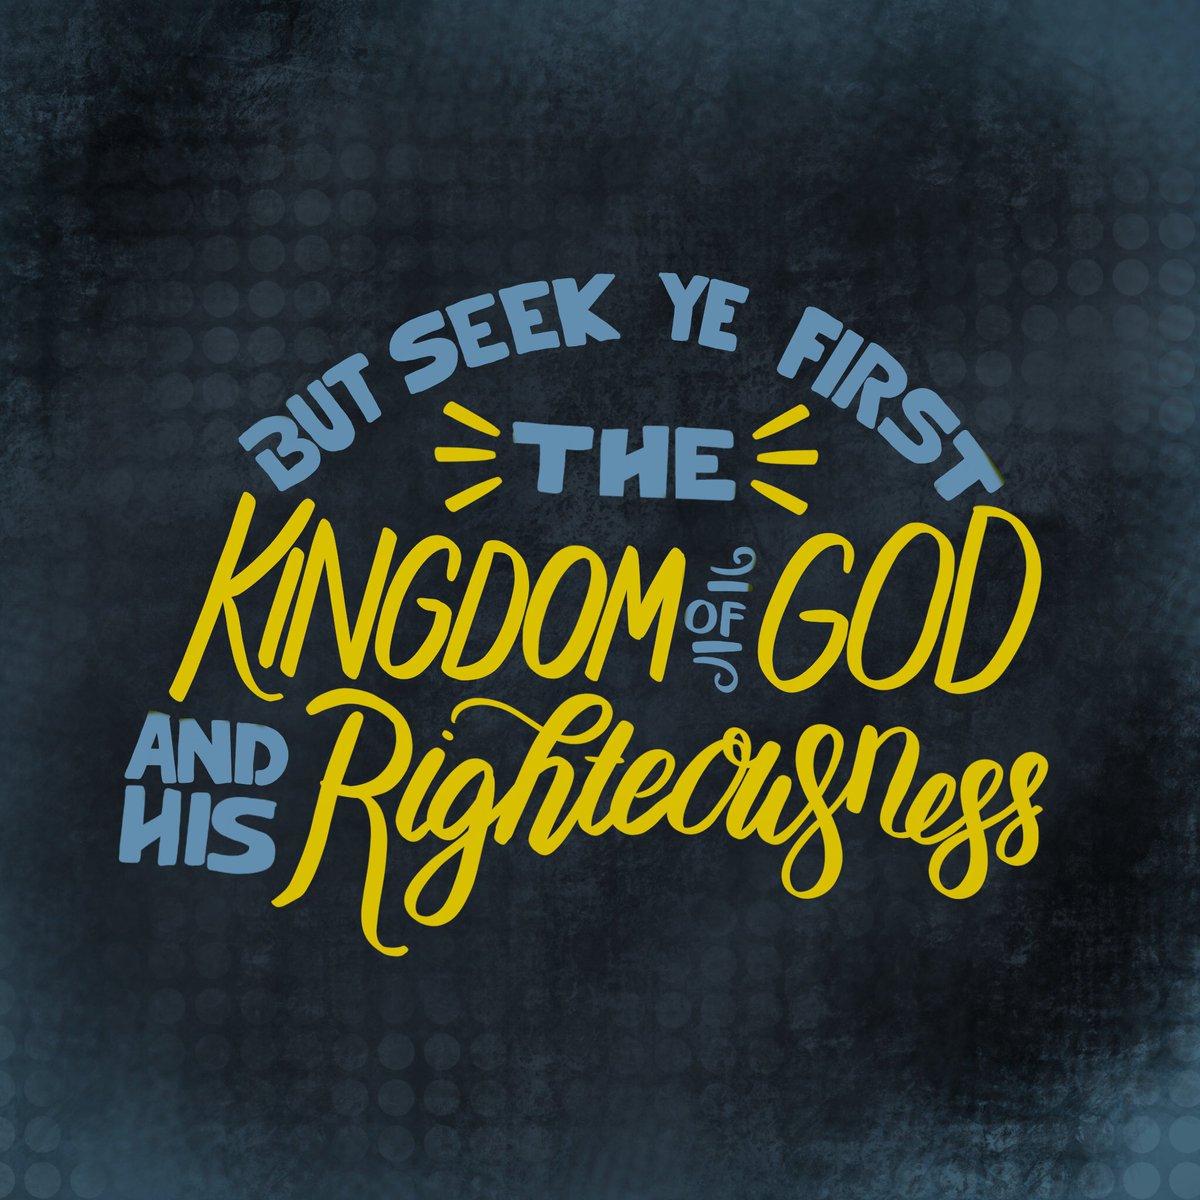 BUT SEEK YE FIRST
THE
KINGDOM OF GOD
AND HIS Righteousness